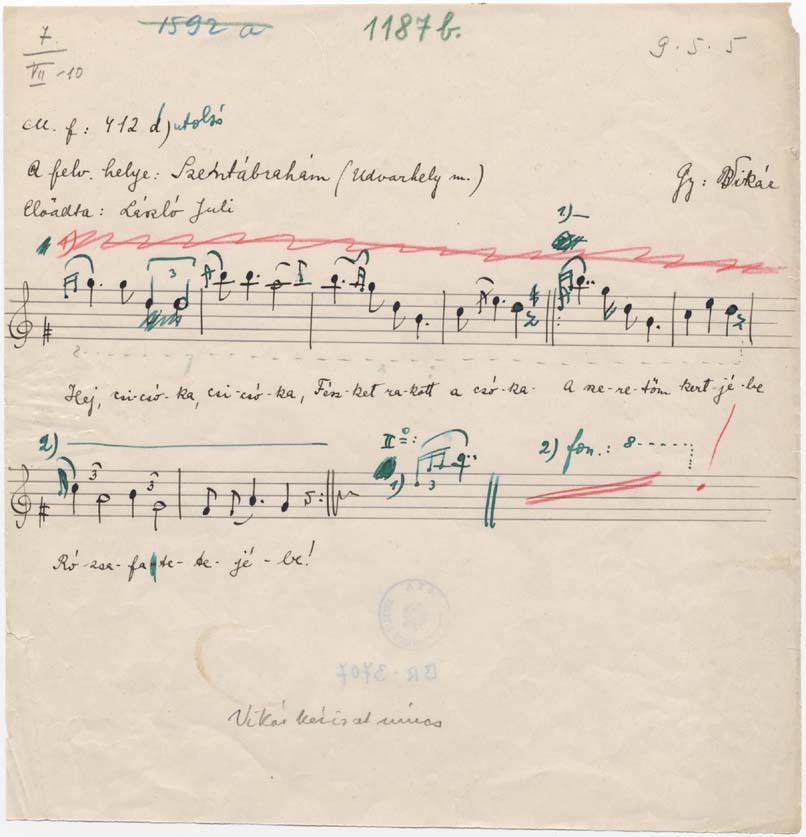 7.
VII -10
1592 a
1187 b.
9. 5. 5
M. f: 412 d) utolsó
A felv. helye: Szentábrahám (Udvarhely m.)
Gy: Vikár
Előadta: László Juli
1)
3
8
Hej, csi-csó-ka, csi-csó-ka, Fész-ket ra-kott a csó-ka. A sze-re-töm kert-jé-be
2)
3 3
II=:
1) 3
2) fon.: 8
Ró-zsa-fa-te-te-jé-be!
BR-3707
Vikár kézirat nincs